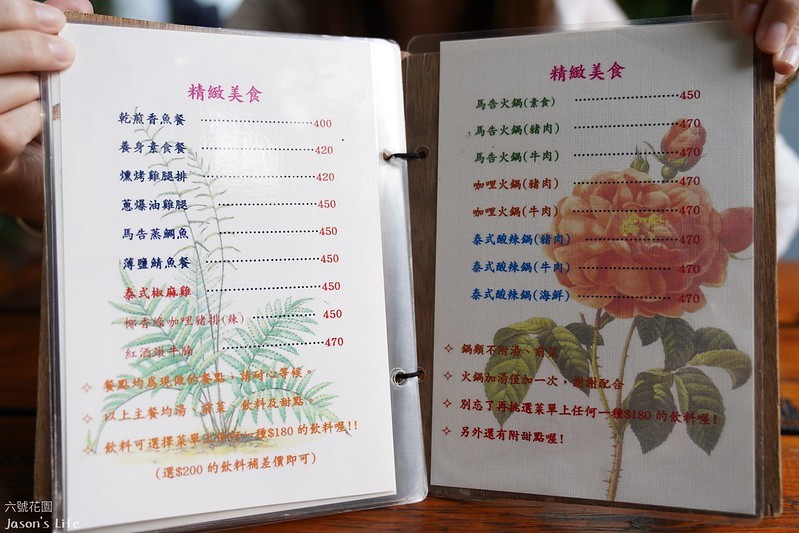 精緻美食
乾煎香魚餐 400
養身素食餐 420
燻烤雞腿排 420
蔥爆油雞腿 450
馬告蒸鯛魚 450
薄鹽鯖魚餐 450
泰式椒麻雞 450
椰香綠咖哩豬排(辣) 450
紅酒燉牛腩 470
✧ 餐點均為現做的餐點，請耐心等候。
✧ 以上主餐均湯，前菜，飲料及甜點。
✧ 飲料可選擇菜單上任何一種$180的飲料喔!!
(選$200的飲料補差價即可)
精緻美食
馬告火鍋(素食) 450
馬告火鍋(豬肉) 470
馬告火鍋(牛肉) 470
咖哩火鍋(豬肉) 470
咖哩火鍋(牛肉) 470
泰式酸辣鍋(豬肉) 470
泰式酸辣鍋(牛肉) 470
泰式酸辣鍋(海鮮) 470
✧ 鍋類不附湯、前菜。
✧ 火鍋加湯僅加一次，謝謝配合
✧ 別忘了再挑選菜單上任何一種$180的飲料喔!
✧ 另外還有附甜點喔!
六號花園
Jason's Life